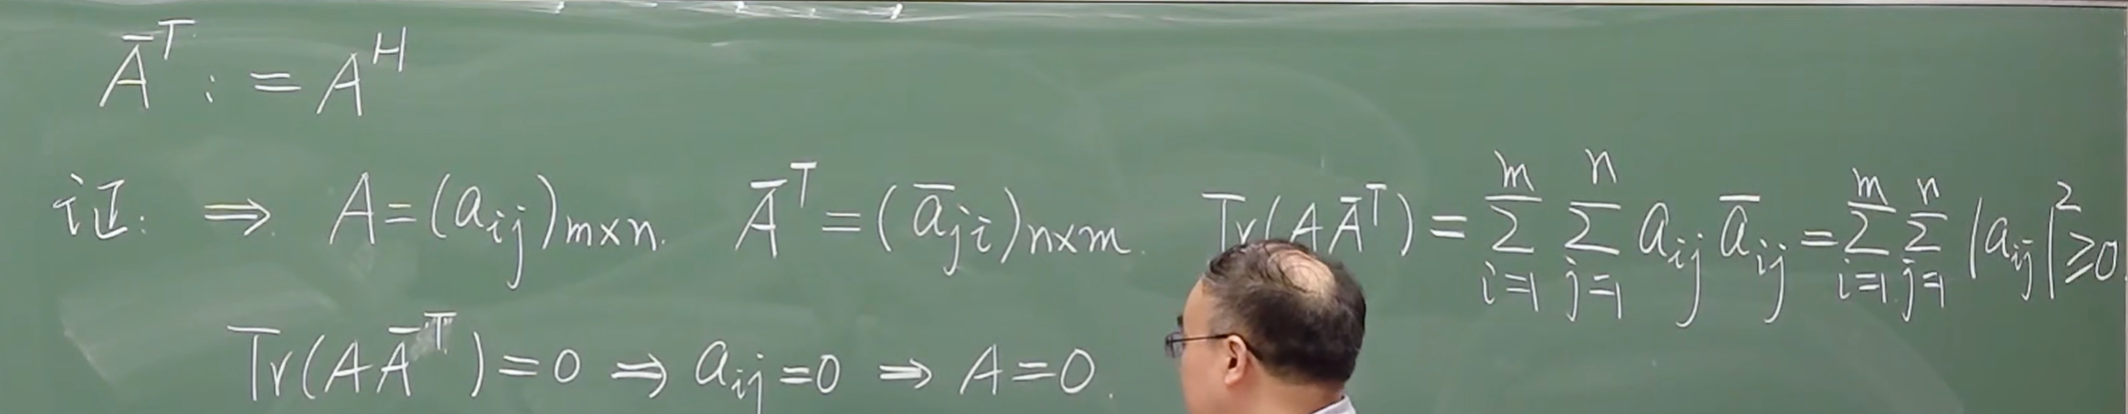 Ā^T := A^H
证: ⇒ A=(a_{ij})_{m×n}. Ā^T=(ā_{ji})_{n×m}. Tr(AĀ^T)=∑_{i=1}^{m}∑_{j=1}^{n}a_{ij}ā_{ij}=∑_{i=1}^{m}∑_{j=1}^{n}|a_{ij}|^2≥0
Tr(AĀ^T)=0 ⇒ a_{ij}=0 ⇒ A=0.